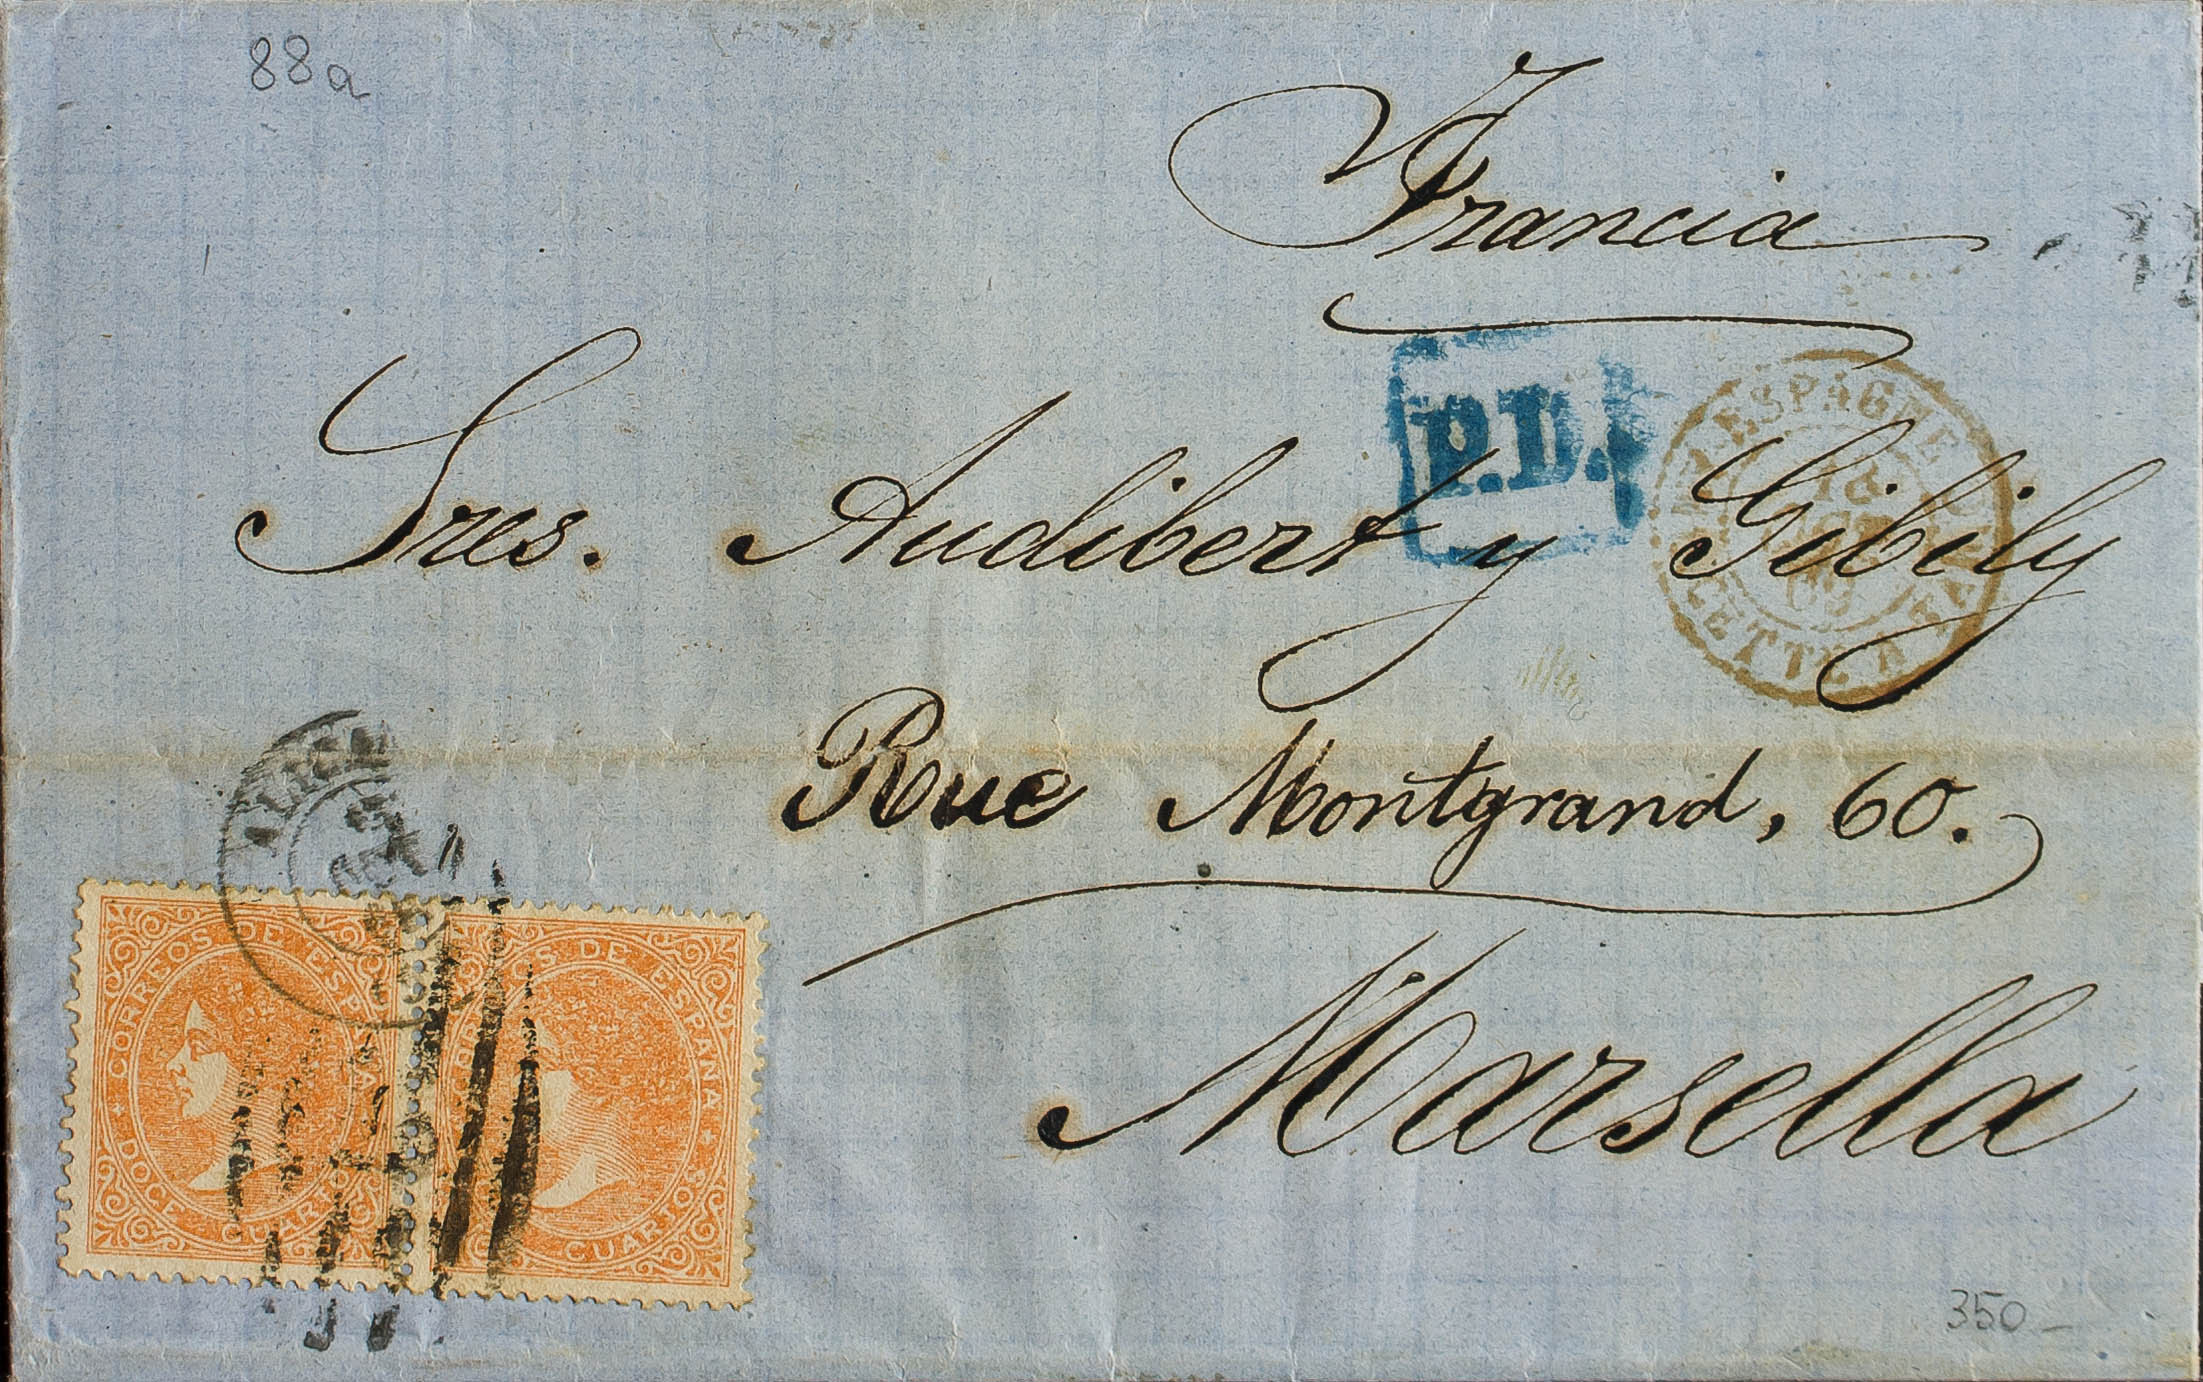 88a
Francia
P.D.
ESPAGNE
18
Sres. Audibert y Gibily
Rue Montgrand, 60.
Marsella
CORREOS DE ESPAÑA
DOCE CUARTOS
DE ESPAÑA
CUARTOS
350